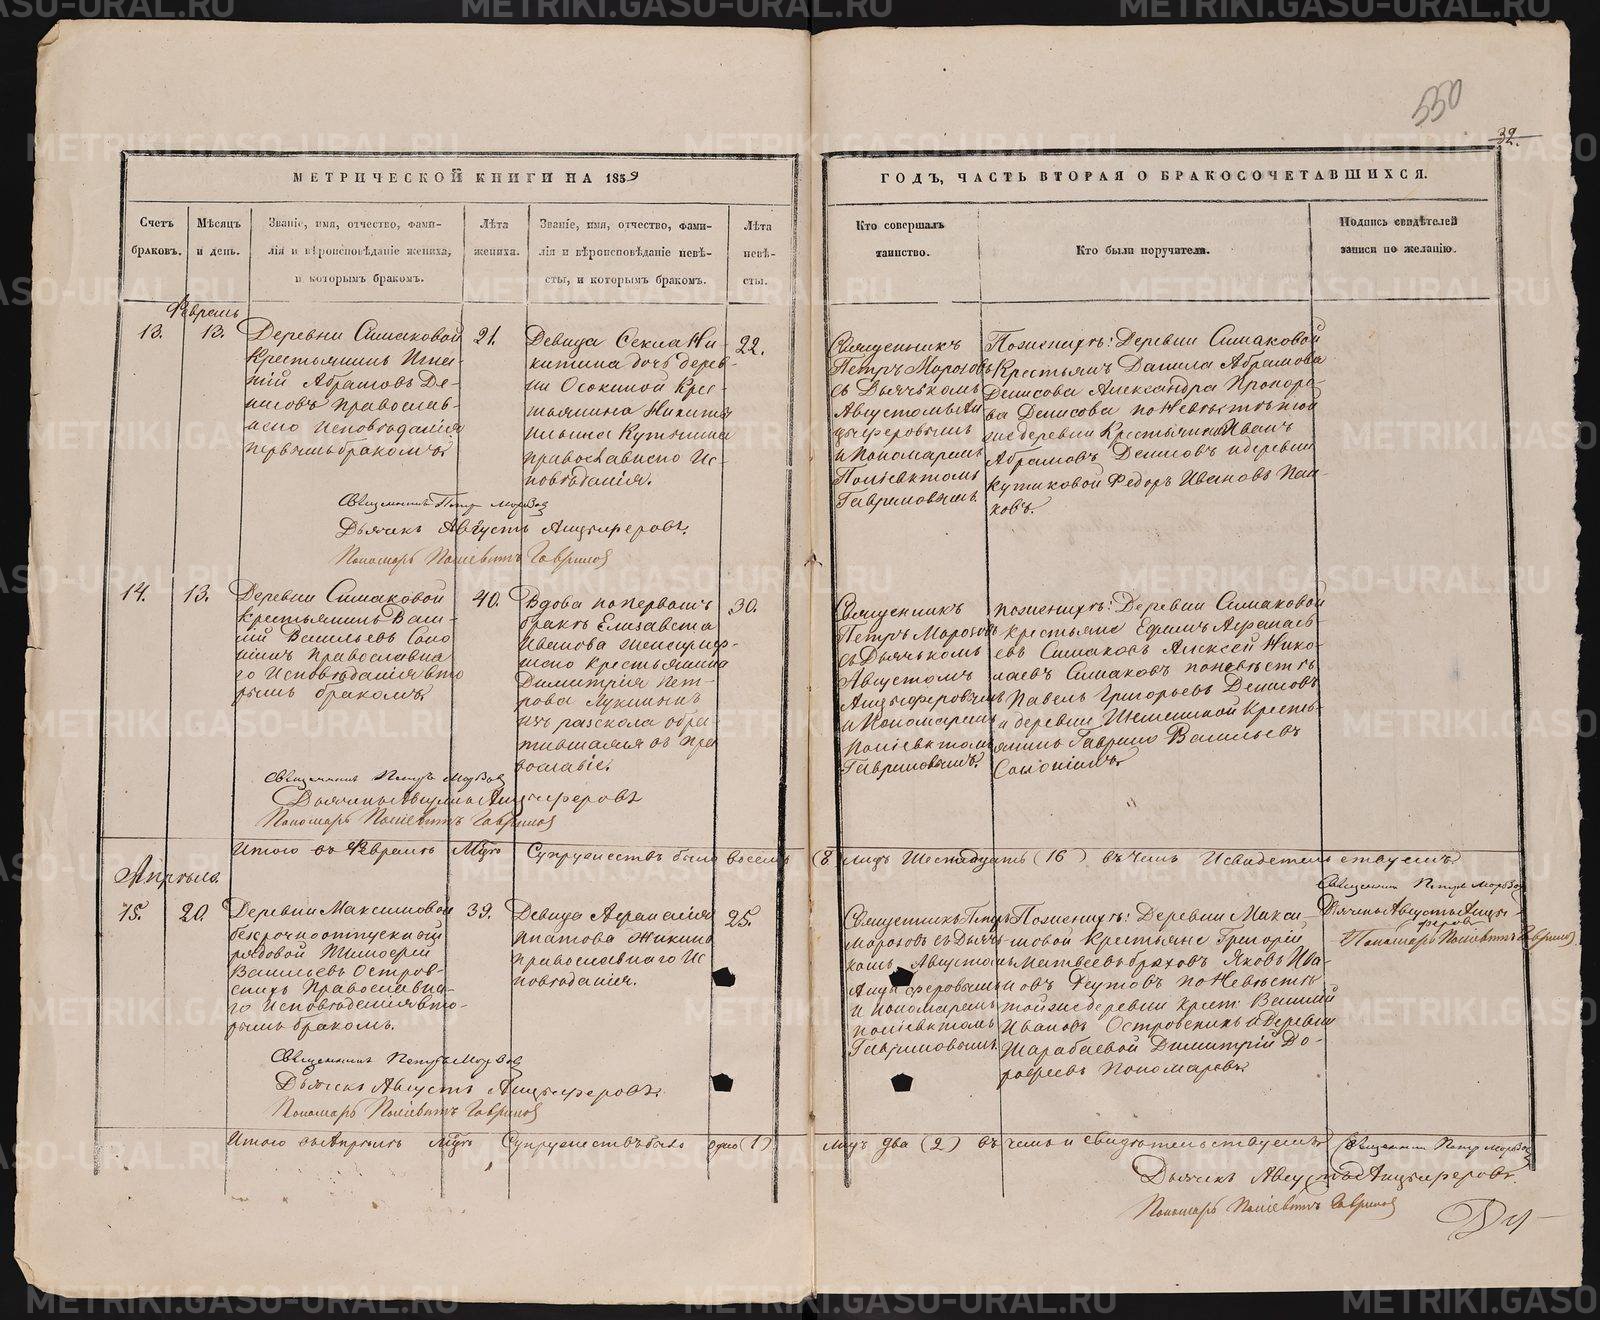 550
32.
МЕТРИЧЕСКОЙ КНИГИ НА 1859
ГОДЪ, ЧАСТЬ ВТОРАЯ О БРАКОСОЧЕТАВШИХСЯ.
Счетъ
браковъ.
Мѣсяцъ
и день.
Званіе, имя, отчество, фами-
лія и вѣроисповѣданіе жениха,
и которымъ бракомъ.
Лѣта
жениха.
Званіе, имя, отчество, фами-
лія и вѣроисповѣданіе невѣ-
сты, и которымъ бракомъ.
Лѣта
невѣ-
сты.
Кто совершалъ
таинство.
Кто были поручатели.
Подпись свидѣтелей
записи по желанію.
Февраль
13.
13.
Деревни Симаковой
Крестьянинъ Игна-
тій Абрамовъ Де-
нисовъ православ-
наго исповѣданія
первымъ бракомъ
21.
Девица Секла Ни-
китина дочь дерев-
ни Осокиной Крес-
тьянина Никиты
православнаго Ис-
повѣданія.
22.
Священникъ
Петръ Морозовъ
съ Дьячькомъ
Августомъ Ан
цыферовымъ
и Пономаремъ
Поліевктомъ
Гавриловымъ
Поженихѣ: Деревни Симаковой
Крестьянъ Данила Абрамова
Денисова Александра Прохоро-
ва Денисова по Невѣстѣ той
же деревни Крестьянина Иванъ
Абрамовъ Денисовъ и деревни
Кутиковой Федоръ Ивановъ Пан-
ковъ.
Священникъ Петръ Морозов
Дьячекъ Августъ Анцыферовъ.
Пономарь Поліевктъ Гаврилов
14.
13.
Деревни Симаковой
Крестьянинъ Васи-
лій Васильевъ Само
нинъ Православна
го Исповѣданія вто
рымъ бракомъ
40.
Вдова по первомъ
бракѣ Елизавета
Иванова
шаго крестьянина
Димитрія Пет-
рова Лукиныхъ
изъ раскола обра-
тившаяся въ пра
вославіе.
30.
Священникъ
Петръ Морозовъ
съ Дьячькомъ
Августомъ
Анцыферовымъ
и Пономаремъ
Поліевктомъ
Гавриловымъ.
поженихѣ: Деревни Симаковой
крестьяне Ефимъ Афанась-
евъ Симаковъ Алексей Нико-
лаевъ Симаковъ по невѣстѣ
Павелъ Григорьевъ Денисовъ
и деревни Крестьь-
янинъ Гаврило Васильевъ
Священникъ Петръ Морозов
Дьячекъ Августъ Анцыферовъ
Пономарь Поліевктъ Гаврилов
Итого въ Февралѣ мцѣ Супружествъ было восемь (8) лицъ Шестнадцать (16) въ чемъ и свидетельствуемъ
Священникъ Петръ Морозов
Дьячекъ Августъ Анцы-
феровъ
Пономарь Поліевктъ Гаврилов
Апрѣль.
15.
20.
Деревни Максимовой
безсрочноотпускный
рядовой Тимофей
Васильевъ Остров-
скихъ Православна-
го Исповѣданія вто-
рымъ бракомъ.
39.
Девица Афанасія
Ипатова Жикина
православнаго Ис
повѣданія.
25.
Священникъ Петръ
Морозовъ съ Дьячь
комъ Августомъ
Анцыферовымъ
и Пономаремъ
поліевктомъ
Гавриловымъ.
Поженихѣ: Деревни Макси-
мовой Крестьяне Григорій
Матвеевъ Яковъ Ива-
новъ Реутовъ по Невѣстѣ
той же деревни Крест: Василій
Ивановъ Островскихъ и Деревни
Шарабаевой Димитрій До-
рофеевъ Пономаревъ
Священникъ Петръ Морозов
Дьячекъ Августъ Анцыферовъ.
Пономарь Поліевктъ Гаврилов
Итого въ Апрѣлѣ мцѣ Супружествъ было одно (1) лицъ два (2) въ чемъ и свидѣтельствуемъ
Священникъ Петръ Морозов
Дьячекъ Августъ Анцыферовъ.
Пономарь Поліевктъ Гаврилов
METRIKI.GASO-URAL.RU